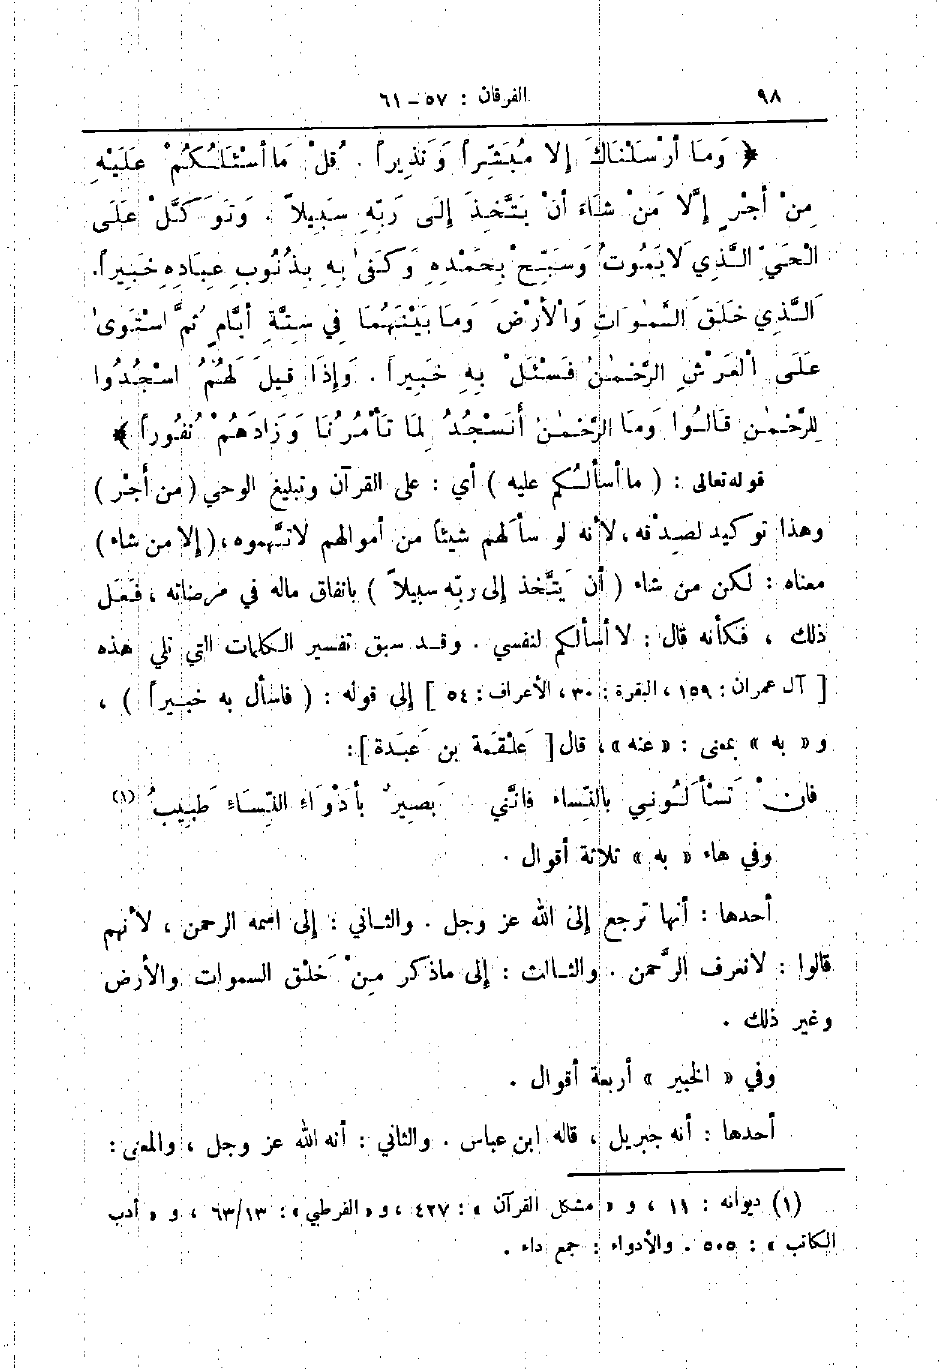 ٩٨ الفرقان : ٥٧ – ٦١
﴿ وَمَا أَرْسَلْنَاكَ إِلا مُبَشِّراً وَنَذِيراً . قُلْ مَا أَسْئَلُكُمْ عَلَيْهِ
مِنْ أَجْرٍ إِلَّا مَنْ شَاءَ أنْ يَتَّخِذَ إِلَى رَبِّهِ سَبِيلاً . وَتَوَكَّلْ عَلَى
الْحَيِّ الَّذِي لَا يَمُوتُ وَسَبِّحْ بِحَمْدِهِ وَكَفىٰ بِهِ بِذُنُوبِ عِبَادِهِ خَبِيراً.
الَّذِي خَلَقَ السَّمٰوَاتِ وَالْأَرْضَ وَمَا بَيْنَهُمَا فِي سِتَّةِ أَيَّامٍ ثُمَّ اسْتَوىٰ
عَلَى الْعَرْشِ الرَّحْمٰنُ فَسْئَلْ بِهِ خَبِيراً . وَإِذَا قِيلَ لَهُمُ اسْجُدُوا
لِلرَّحْمٰنِ قَالُوا وَمَا الرَّحْمٰنُ أَنَسْجُدُ لِمَا تَأْمُرُنَا وَزَادَهُمْ نُفُوراً ﴾
قوله تعالى : ( ما أسألُكم عليه ) أي : على القرآن وتبليغ الوحي ( من أجْر )
وهذا توكيد لصِدْقه، لأنه لو سألهم شيئاً من أموالهم لاتَّهموه، ( إلا من شاء )
معناه : لكن من شاء ( أن يَتَّخذ إلى ربِّه سبيلاً ) بانفاق ماله في مرضاته ، فَعَل
ذلك ، فكأنه قال : لا أسألكم لنفسي . وقد سبق تفسير الكلمات التي تلي هذه
[ آل عمران : ١٥٩ ، البقرة : ٣٠ ، الأعراف : ٥٤ ] إلى قوله : ( فاسأل به خبيراً ) ،
و « به » بمعنى : « عنه »، قال [ عَلْقَمة بن عَبَدة ] :
فان تَسْأَلُونِي بِالنِّساء فانَّني بَصِيرٌ بأَدْوَاء النِّسَاءِ طَبِيبُ (١)
وفي هاء « به » ثلاثة أقوال .
أحدها : أنها ترجع إلى الله عز وجل . والثاني : إلى اسمه الرحمن ، لأنهم
قالوا : لا نعرف الرَّحمن . والثالث : إلى ماذكر مِنْ خَلْق السموات والأرض
وغير ذلك .
وفي « الخبير » أربعة أقوال .
أحدها : أنه جبريل ، قاله ابن عباس . والثاني : أنه الله عز وجل ، والمعنى :
(١) ديوانه : ١١ ، و « مشكل القرآن » : ٤٢٧ ، و « القرطبي » : ٦٣/١٣ ، و « أدب
الكاتب » : ٥٠٥ . والأدواء : جمع داء .